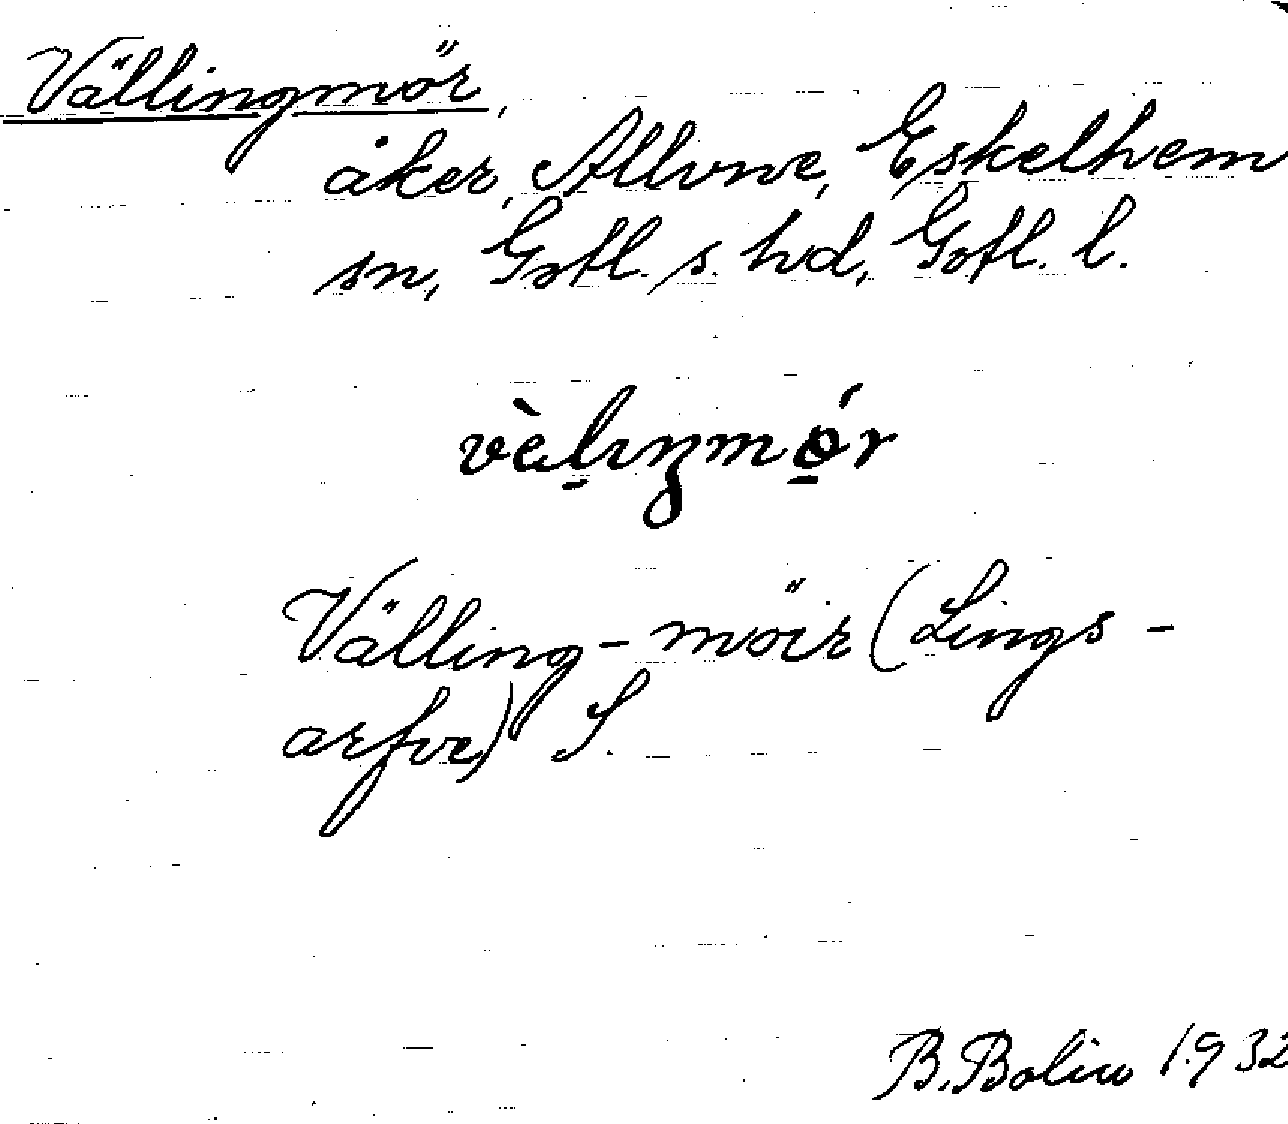 Vällingmör,
åker, Allvne, Eskelhem
sn, Gotl. s. hd, Gotl. l.
Välling-möir (Lings-
arfve) S.
B. Bolin 1932